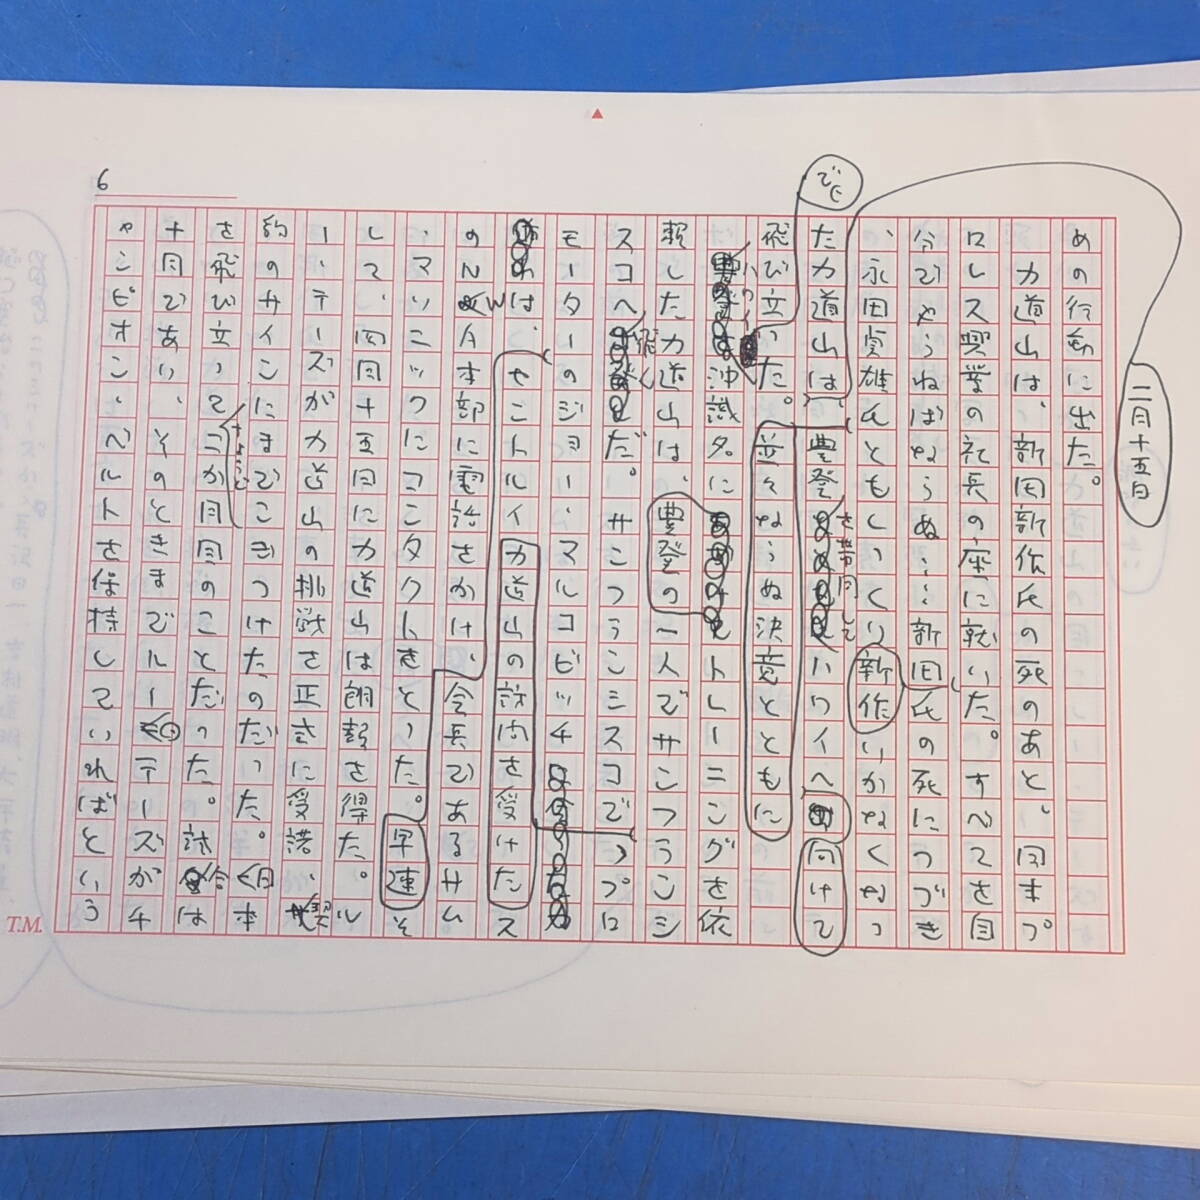 6
二月十五日
めの行動に出た。
力道山は、新田新作氏の死のあと、日本プ
ロレス興業の社長の座に就いた。すべてを自
分でやらねばならぬ……新田氏の死につづき
、永田貞雄氏ともしっくりいかなくなっ
新作
でに
た力道山は、豊登
を帯同して
ハワイへ
向けて
飛び立った。並々ならぬ決意とともに
ハワイ
沖識名に
トレーニングを依
頼した力道山は、豊登の一人でサンフランシ
スコへ
飛ん
だ。サンフランシスコでプロ
モーターのジョー・マルコビッチ
力道山の訪問を受けた
は、セントルイス
のNWA本部に電話をかけ、会長であるサム
・マソニックにコンタクトをとった。早速そ
して、同月十五日に力道山は朗報を得た。ル
ー・テーズが力道山の挑戦を正式に受諾、契
約のサインにまでこぎつけたのだった。日本
を飛び立って
ちょうど
二か月目のことだった。試合は
十月であり、そのときまでルー・テーズがチ
ャンピオン・ベルトを保持していればという
T.M.